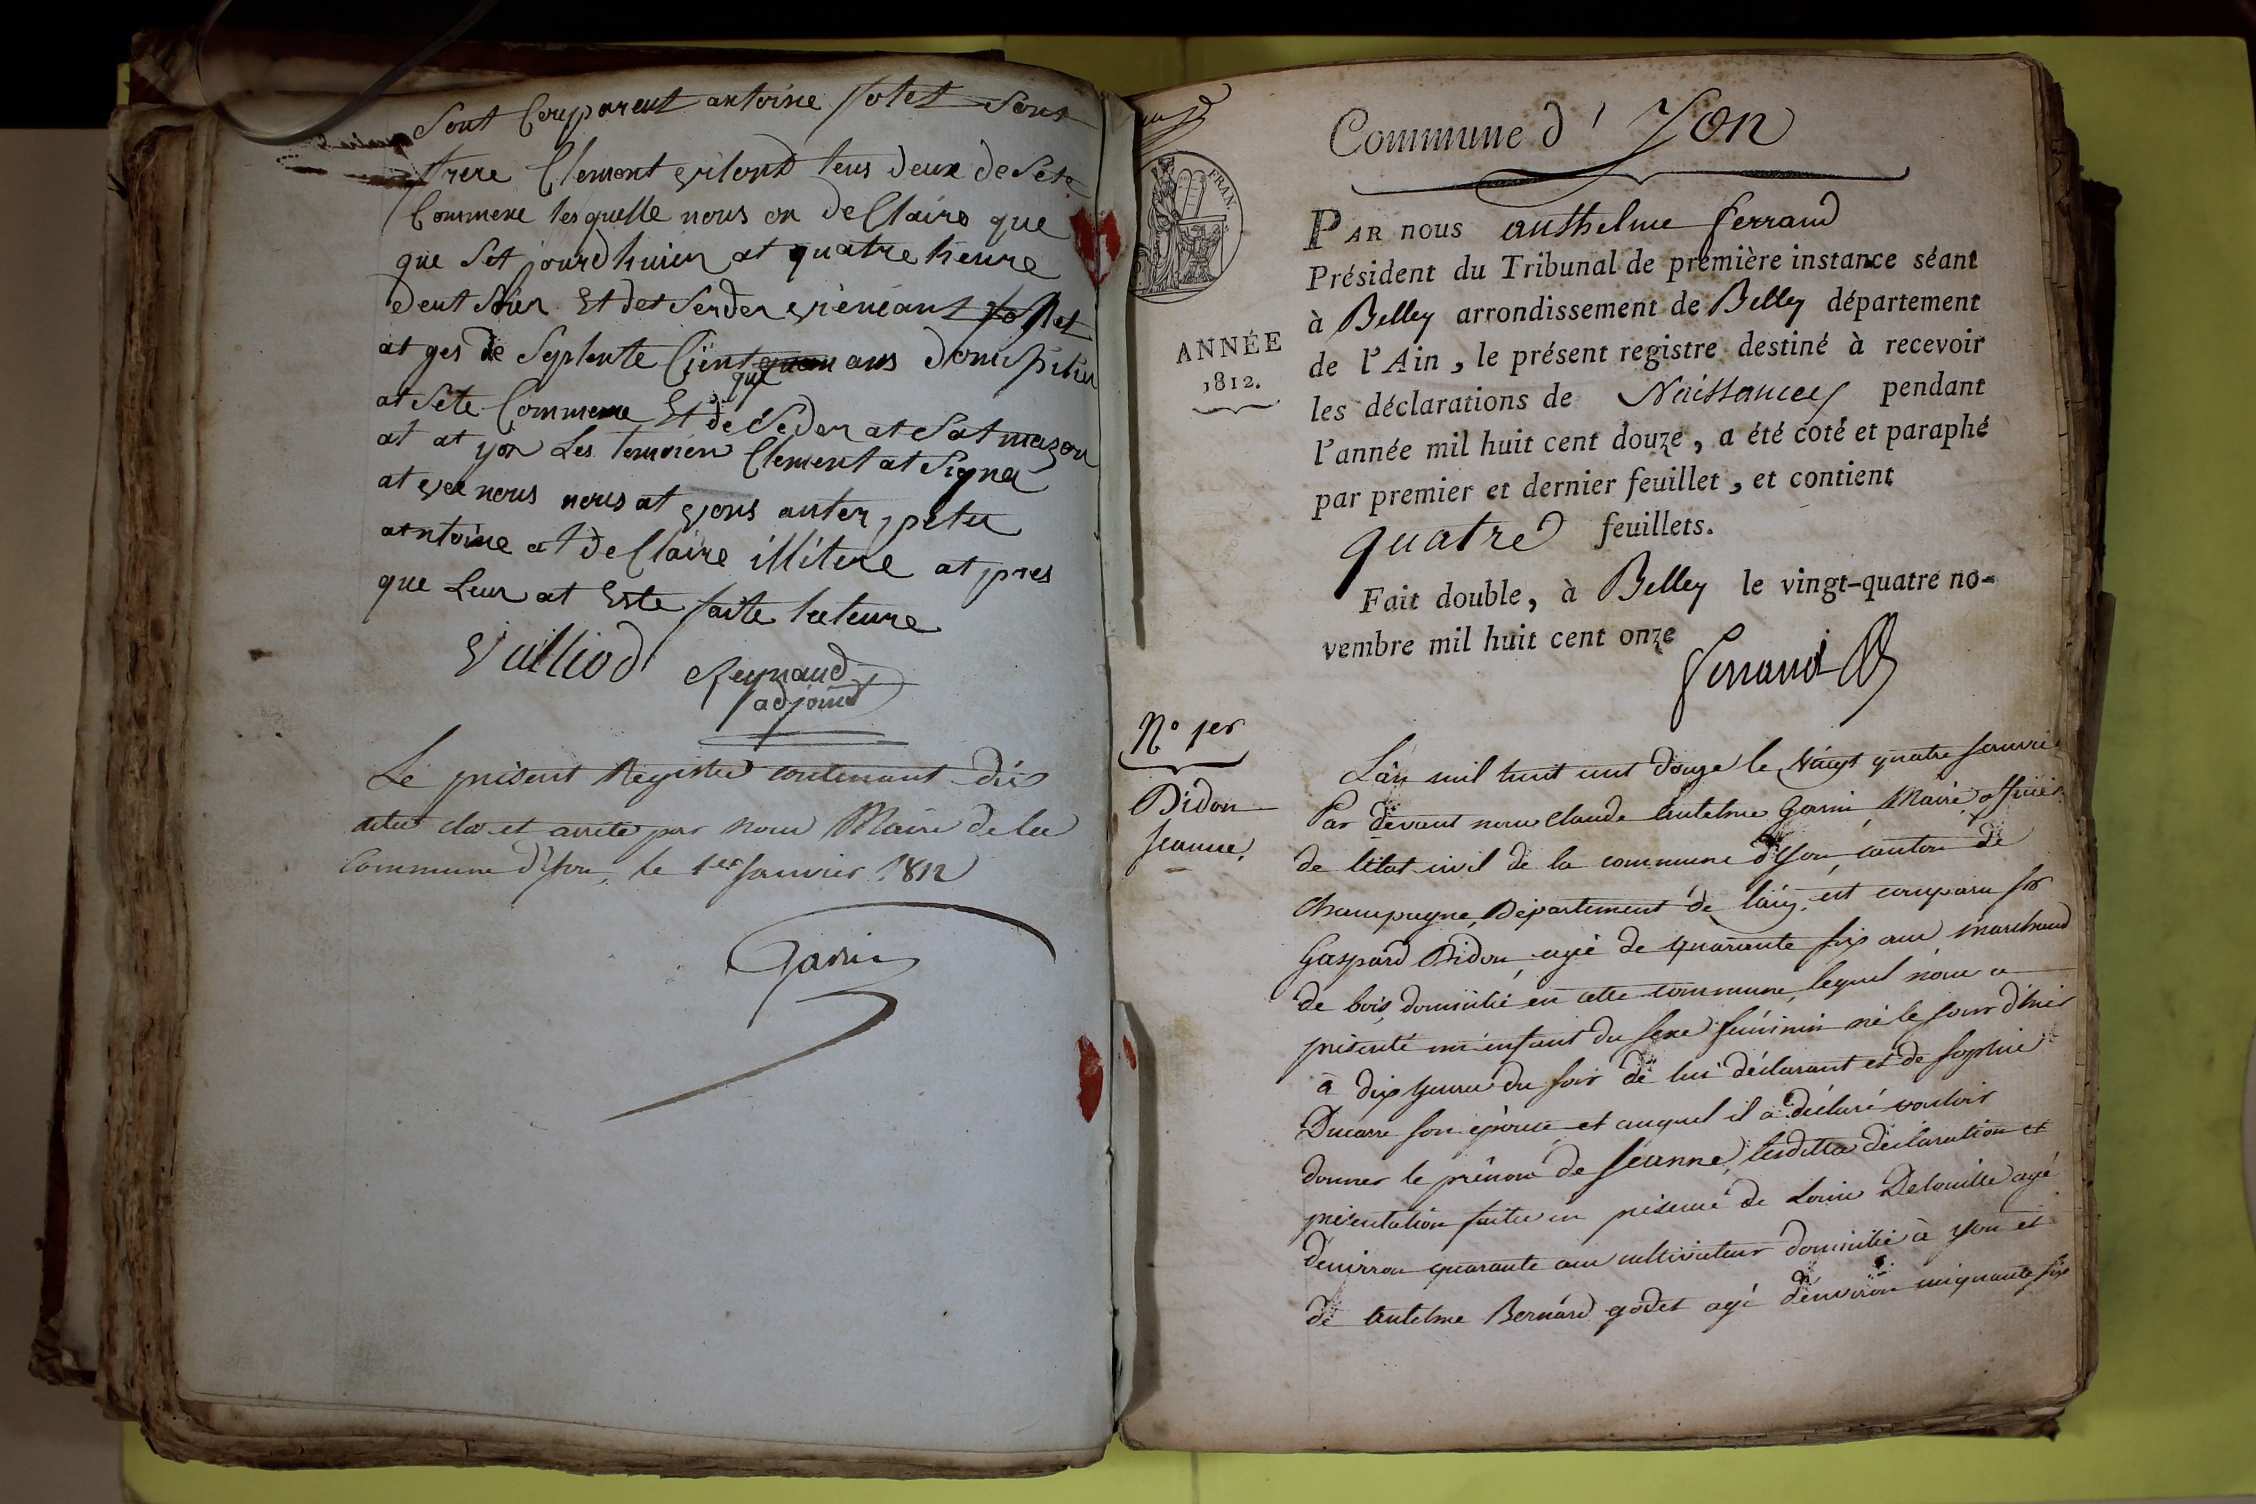 Sont Comparent antoine jotet Sont
frere Clement vilond tous deux de Sete
Commene les quelle nous on de Claire que
que Set jourdhuien at quatre heure
deut Soier Et det Serder vieneant jottet
at ges de Septente Cient ans domisilier
at Sete Commene Et que de Seder at Sat mazon
at at yon Les temoien Clement at Signer
at vec nous nous at vons anter petu
antoine at de Claire illitere at pres
que Leur at Este faite lecteure
Vuilliod Reynaud
adjoind
Le présent Registre contenant dix
actes clos et arrêté par nous Maire de la
Commune d'yon, le 1er Janvier 1812
Garin
FRAN.
ANNÉE
1812.
Commune d' Yon
PAR nous anthelme ferrand
Président du Tribunal de première instance séant
à Belley arrondissement de Belley département
de l'Ain, le présent registre destiné à recevoir
les déclarations de Naissances pendant
l'année mil huit cent douze, a été coté et paraphé
par premier et dernier feuillet, et contient
quatre feuillets.
Fait double, à Belley le vingt-quatre no-
vembre mil huit cent onze
ferrand
N° 1er
Didon
Jeanne.
L'an mil huit cent douze le vingt quatre Janvier
Par devant nous Claude Antelme Garin, Maire officier
de l'état civil de la commune d'Yon, canton de
Champagne, Département de l'ain, est comparu sr
Gaspard Didon, agé de quarante six ans, marchand
de bois, domicilié en cette commune, lequel nous a
présenté un enfant du sexe féminin né le jour d'hier
à dix heures du soir de lui déclarant et de Sophie
Ducarre son épouse et auquel il a déclaré vouloir
donner le prénom de Jeanne, lesdittes déclaration et
présentation faites en présence de Louis Delouille agé
d'environ quarante ans cultivateur domicilié à Yon et
de Antelme Bernard godet agé d'environ cinquante six